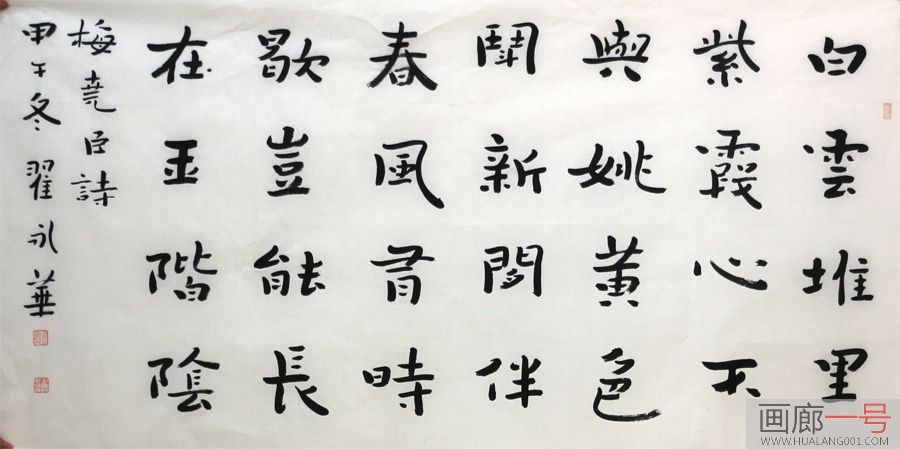 白雲堆里
紫霞心不
與姚黄色
鬪新閒伴
春風有時
歇豈能長
在玉階陰
梅堯臣詩
甲午冬翟永華
画廊一号
WWW.HUALANG001.COM